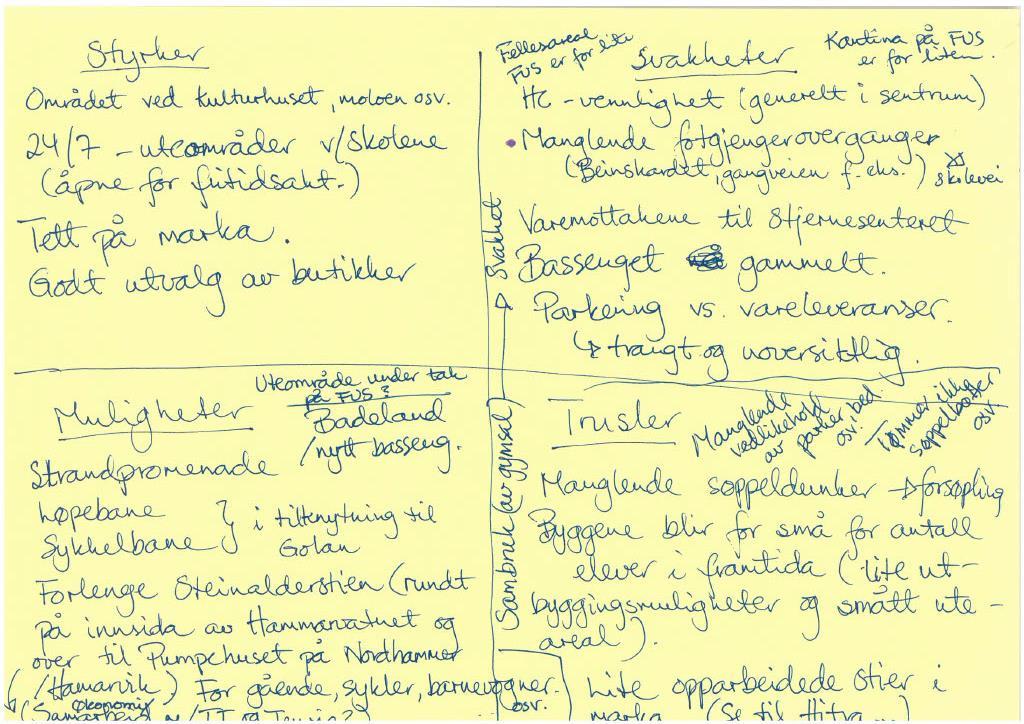 Styrker
Området ved kulturhuset, moloen osv.
24/7 - uteområder v/skolene
(åpne for fritidsakt.)
Tett på marka.
Godt utvalg av butikker
Fellesareal
FUS er for lita
Svakheter
Kantina på FUS
er for liten.
HC - vennlighet (generelt i sentrum)
• Manglende fotgjengeroverganger
(Beinskardet, gangveien f. eks.)
skolevei
Varemottakene til Stjernesenteret
Bassenget gammelt.
Parkering vs. vareleveranser.
↳ trangt og uoversiktlig.
Sambruk (av gymsal) → Svakhet
Muligheter
Uteområde under tak
på FUS?
Badeland
/nytt basseng.
Strandpromenade
Løpebane
Sykkelbane } i tilknytning til
Golan
Forlenge Steinalderstien (rundt
på innsida av Hammarvatnet og
over til Pumpehuset på Nordhammer
/Hamarvik) For gående, sykler, barnevogner.
osv.
økonomix
(Samarbeid m/TT og
Trusler
Manglende
vedlikehold
av parker, bed
osv.
Tømmer ikke
søppelbøtter
osv.
Manglende søppeldunker → forsøpling
Byggene blir for små for antall
elever i framtida (lite ut-
byggingsmuligheter og smått ute-
areal).
Lite opparbeidede stier i
marka (Se til Hitra...)